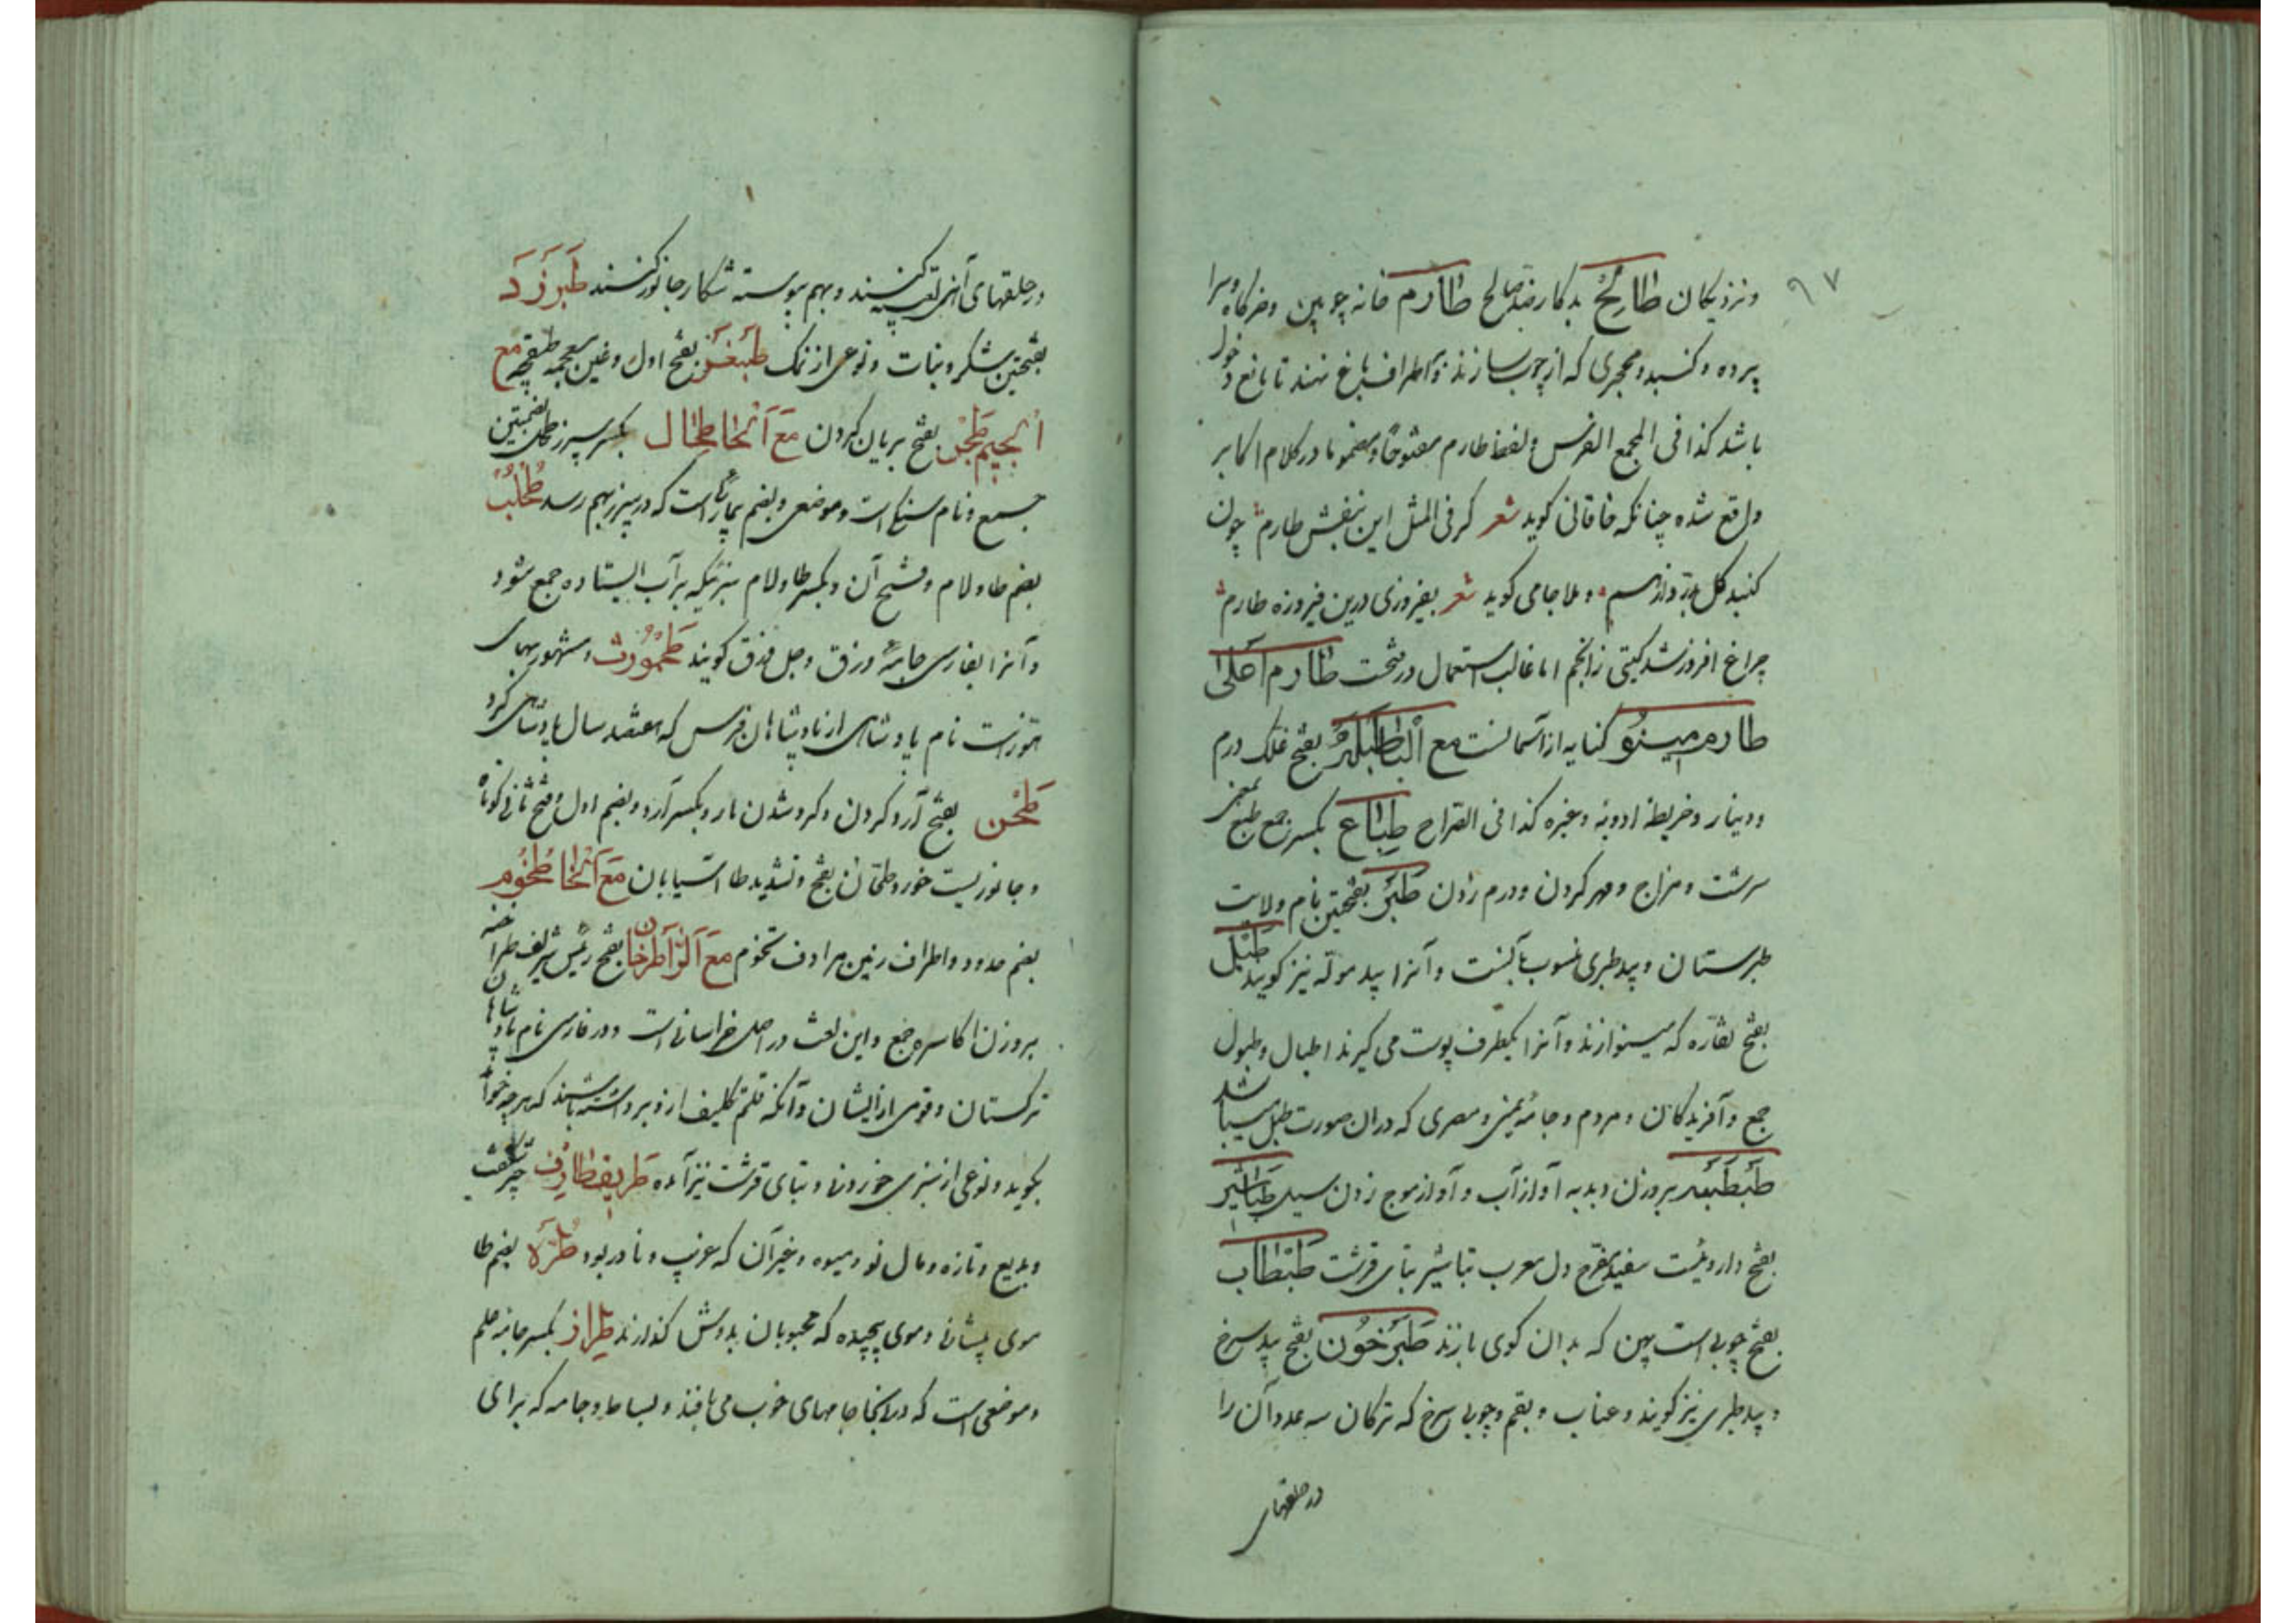 ۹۷
ونزدیکان طالح بدکار ضد صالح طارم خانه چوبین وخرکاه وسرا
پرده وکنبد ومحجری که از چوب سازند و اطراف باغ نهند تا مانع دخول
باشد کذا فی المجمع الفرس ولفظ طارم مفتوحا ومضموما در کلام اکابر
واقع شده چنانکه خاقانی کوید شعر کر فی المثل این بنفش طارم چون
کنبد کل وملا جامی کوید شعر بفیروزی درین فیروزه طارم
چراغ افروز شد کیتی ز انجم اما غالب استعمال در فتحت طارم اعلی
طارم مینو کنایه از آسمانست مع البا طبله بفتح غلک درم
ودینار وخریطه ادویه وغیره کذا فی الصراح طباع بکسر جمع طبع بمعنی
سرشت ومزاج ومهر کردن ودرم زدن طبر بفتحتین نام ولایت
طبرستان وبید طبری منسوب بآنست وآنرا بید موله نیز کویند طبل
بفتح نقاره که مینوازند وآنرا یکطرف پوست می کیرند اطبال وطبول
جمع وآفریدکان ومردم وجامه یمنی ومصری که دران صورت طبل میباشد
طبطبه بروزن دبدبه آواز آب وآواز موج زدن سیل طباشیر
بفتح داروئیست سفید مفرح دل معرب تباشیر بتای قرشت طبطاب
بفتح چوبی است پهن که بدان کوی بازند طبرخون بفتح بید سرخ
وبید طبری نیز کویند وعناب وبقم وچوبی سرخ که ترکان سه عدد آن را
در حلقهای
در حلقهای آهنی تعبیه کنند وبهم پیوسته شکار جانور کنند طبرزد
بفتحتین شکر ونبات ونوعی از نمک بفتح اول وغین معجمه طبقچه مع
الجیم طجن بفتح بریان کردن مع الحا طحال بکسر سپرز طحل بضمتین
جمع ونام سنکی است وموضعی وبضم بیماری است که در سپرز بهم رسد طحلب
بضم طا ولام وفتح آن وبکسر طا ولام سبزیکه بر آب ایستاده جمع شود
وآنرا بفارسی جامه وزق وجل وزق کویند طحمورث مشهور بهای
هوزست نام پادشاهی از پادشاهان فرس که هفتصد سال پادشاهی کرد
طحن بفتح آرد کردن وکرد شدن مار وبکسر آرد وبضم اول وفتح ثانی کوتاه
وجانوریست خورد طحان بفتح وتشدید طا آسیابان مع الخا طخوم
بضم حدود واطراف زمین مرادف تخوم مع الرا طرخان بفتح رئیس شریف طراخنه
بروزن اکاسره جمع واین لغت در اصل خراسانی است ودر فارسی نام پادشاهان
ترکستان وقومی از ایشان وآنکه قلم تکلیف ازو برداشته باشند که هر چه خواهد
بکوید ونوعی از سبزی خوردنی وبتای قرشت نیز آمده طریف طارف چیز شکفت
وبدیع وتازه ومال نو ومیوه وغیر آن که غریب ونادر بود طره بضم طا
موی پیشانی وموی پیچیده که محبوبان بدوش کذارند طراز بکسر جامه علم
وموضعی است که در آنجا جامهای خوب می بافند وبساط وجامه که برای